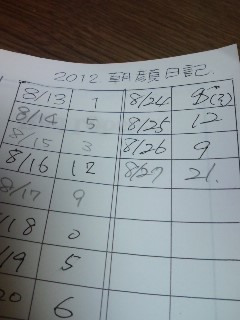 2012 朝顔日記
8/13 1 8/24
8/14 5 8/25 12
8/15 3 8/26 9
8/16 12 8/27 21.
8/17 9
18 0
19 5
20 6